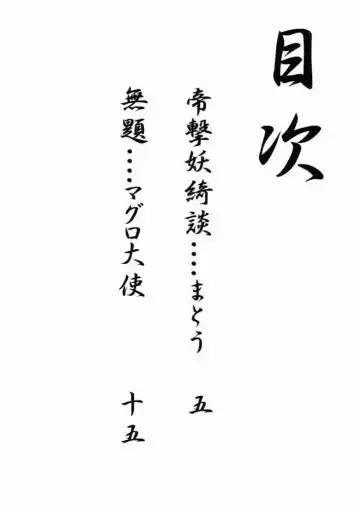 目次
帝撃妖綺談‥‥まとう 五
無題‥‥マグロ大使 十五